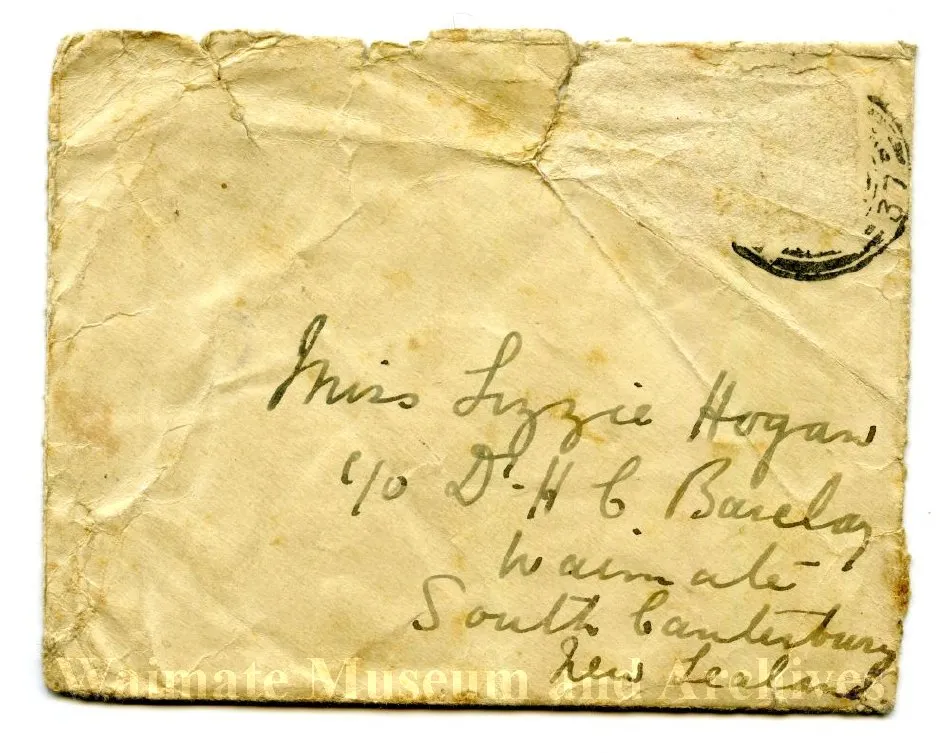 37
Miss Lizzie Hogan
c/o Dr. H C. Barclay
Waimate
South Canterbury
New Zealand
Waimate Museum and Archives